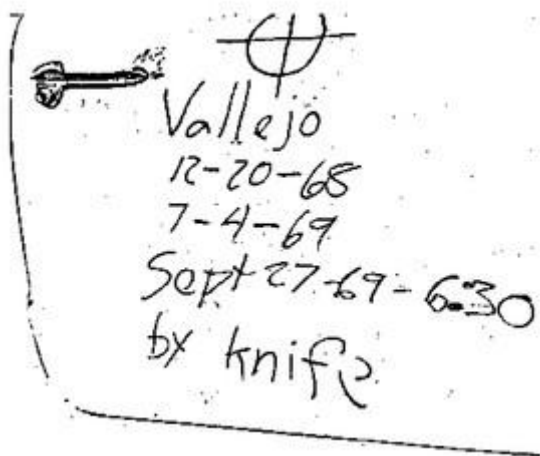 Vallejo
12-20-68
7-4-69
Sept 27-69-6:30
by knife